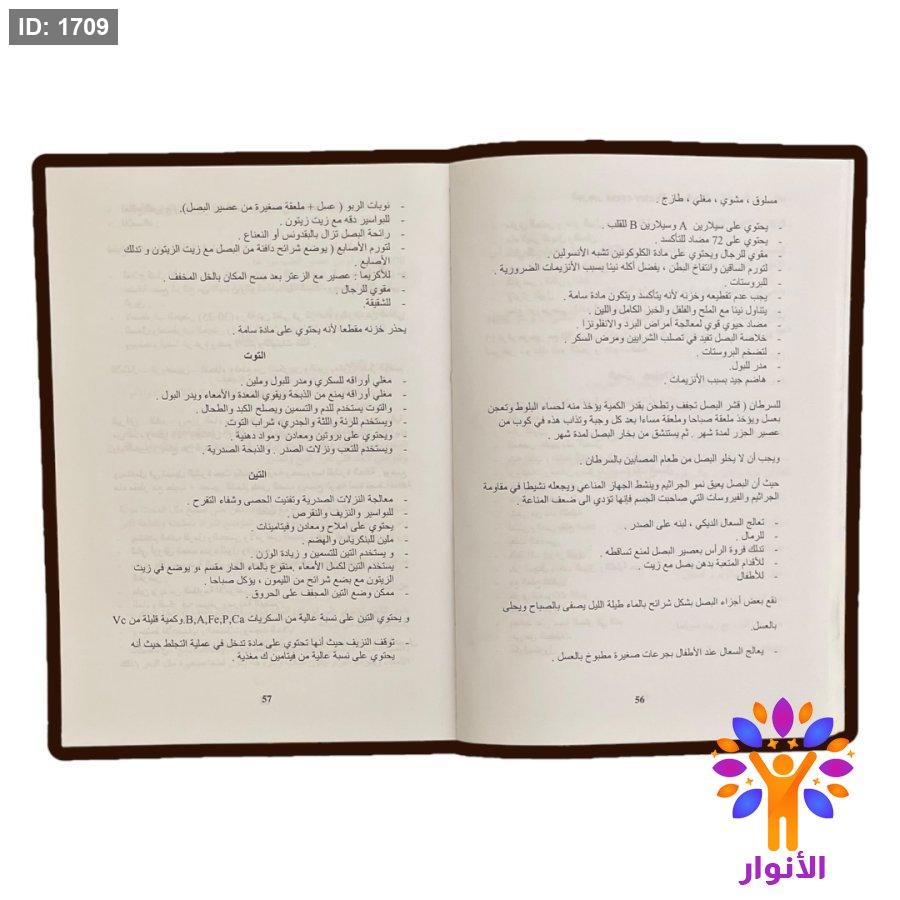 ID: 1709
مسلوق ، مشوي ، مغلي ، طازج .
- يحتوي على سيلارين A وسيلارين B للقلب .
- يحتوي على 72 مضاد للتأكسد .
- مقوي للرجال ويحتوي على مادة الكلوكونين تشبه الأنسولين .
- لتورم الساقين وانتفاخ البطن ، يفضل أكله نيئا بسبب الأنزيمات الضرورية .
- للبروستات .
- يجب عدم تقطيعه وخزنه لأنه يتأكسد ويتكون مادة سامة .
- يتناول نيئا مع الملح والفلفل والخبز الكامل واللبن .
- مضاد حيوي قوي لمعالجة أمراض البرد والانفلونزا .
- خلاصة البصل تفيد في تصلب الشرايين ومرض السكر .
- لتضخم البروستات .
- مدر للبول.
- هاضم جيد بسبب الأنزيمات .
للسرطان ( قشر البصل تجفف وتطحن بقدر الكمية يؤخذ منه لحساء البلوط وتعجن
بعسل ويؤخذ ملعقة صباحا وملعقة مساءا بعد كل وجبة وتذاب هذه في كوب من
عصير الجزر لمدة شهر . ثم يستنشق من بخار البصل لمدة شهر .
ويجب أن لا يخلو البصل من طعام المصابين بالسرطان .
حيث أن البصل يعيق نمو الجراثيم وينشط الجهاز المناعي ويجعله نشيطا في مقاومة
الجراثيم والفيروسات التي صاحبت الجسم فإنها تؤدي الى ضعف المناعة .
- تعالج السعال الديكي ، لبنه على الصدر .
- للرمال .
- تدلك فروة الرأس بعصير البصل لمنع تساقطه .
- للأقدام المتعبة يدهن بصل مع زيت .
- للأطفال
نقع بعض أجزاء البصل بشكل شرائح بالماء طيلة الليل يصفى بالصباح ويحلى
بالعسل.
- يعالج السعال عند الأطفال بجرعات صغيرة مطبوخ بالعسل .
56
- نوبات الربو ( عسل + ملعقة صغيرة من عصير البصل).
- للبواسير دقه مع زيت زيتون .
- رائحة البصل تزال بالبقدونس أو النعناع .
- لتورم الأصابع ( يوضع شرائح دافئة من البصل مع زيت الزيتون و تدلك
الأصابع .
- للأكزيما : عصير مع الزعتر بعد مسح المكان بالخل المخفف .
- مقوي للرجال .
- للشقيقة.
يحذر خزنه مقطعا لأنه يحتوي على مادة سامة .
التوت
- مغلي أوراقه للسكري ومدر للبول وملين .
- مغلي أوراقه يمنع من الذبحة ويقوي المعدة والأمعاء ويدر البول .
- والتوت يستخدم للدم والتسمين ويصلح الكبد والطحال .
- ويستخدم للرئة واللثة والجدري، شراب التوت.
- ويحتوي على بروتين ومعادن ومواد دهنية .
- ويستخدم للتعب ونزلات الصدر . والذبحة الصدرية .
التين
- معالجة النزلات الصدرية وتفتيت الحصى وشفاء التقرح .
- للبواسير والنزيف والنقرص .
- يحتوي على املاح ومعادن وفيتامينات .
- ملين للبنكرياس والهضم .
- و يستخدم التين للتسمين و زيادة الوزن .
- يستخدم التين لكسل الأمعاء ,منقوع بالماء الحار مقسم ,و يوضع في زيت
الزيتون مع بضع شرائح من الليمون ، يؤكل صباحا .
- ممكن وضع التين المجفف على الحروق .
و يحتوي التين على نسبة عالية من السكريات B,A,Fe,P,Ca,وكمية قليلة من Vc
- توقف النزيف حيث أنها تحتوي على مادة تدخل في عملية التجلط حيث أنه
يحتوي على نسبة عالية من فيتامين ك مغذية .
57
الأنوار